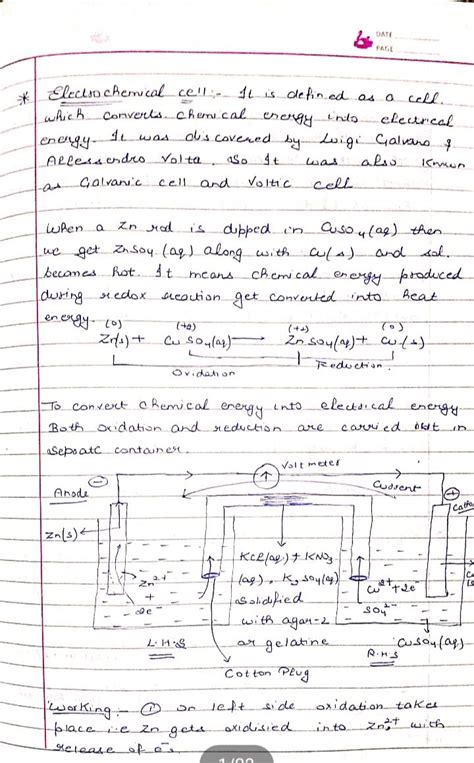 DATE
PAGE
* Electrochemical cell :- It is defined as a cell.
which converts chemical energy into electrical
energy. It was discovered by Luigi Galvano &
Allessendro Volta. So It was also Known
as Galvanic cell and Voltic cell
When a Zn rod is dipped in CuSO4 (aq) then
we get ZnSO4 (aq) along with Cu(s) and sol.
becomes hot. It means chemical energy produced
during redox reaction get converted into heat
energy.
(0) (+2) (+2) (0)
Zn(s) + CuSO4(aq) → ZnSO4(aq) + Cu(s)
Reduction.
Oxidation
To convert chemical energy into electrical energy
Both oxidation and reduction are carried out in
container.
Voltmeter
Anode
Current
Zn(s)
KCl(aq) + KNO3
(aq), K2SO4(aq)
Solidified
with agar-2
or gelatine
Zn2+
+
2e-
Cu2+ + 2e-
SO4 2-
L.H.S
R.H.S
CuSO4(aq)
Cotton Plug
Working :- ① on left side oxidation takes
place i.e Zn gets oxidisied into Zn2+ with
release of e-s.